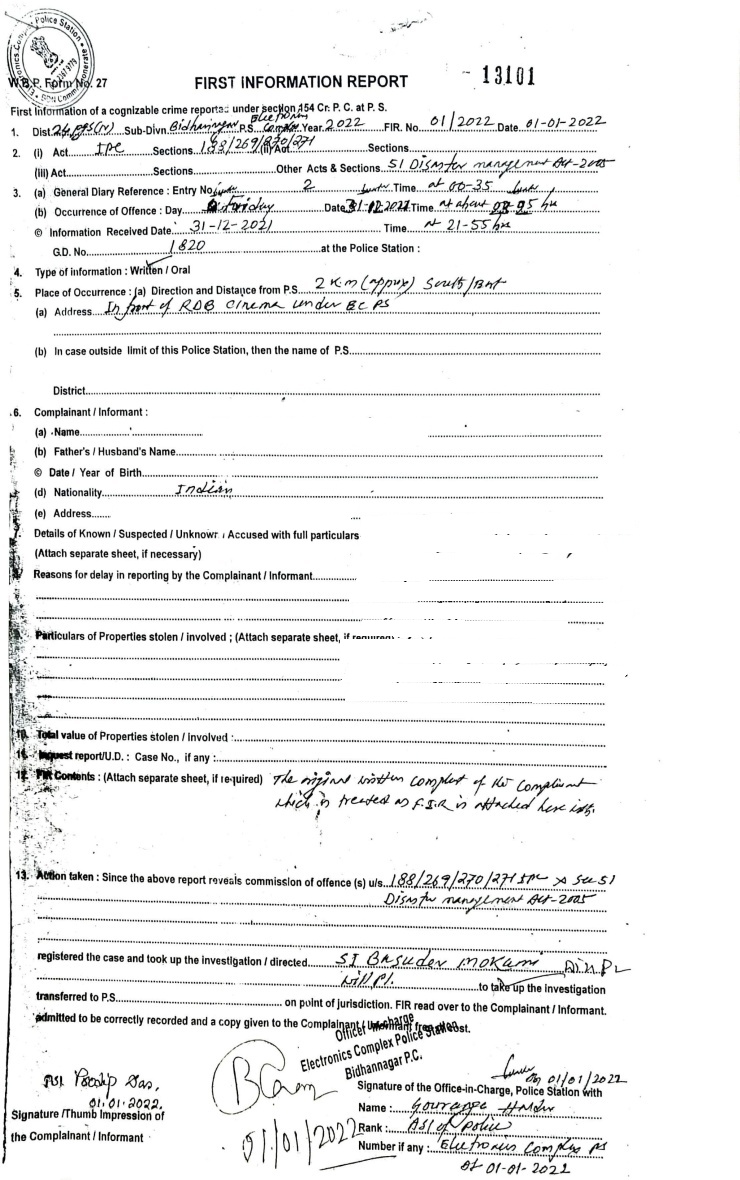 Electronics Complex Police Station
W.B.P. Form No. 27
FIRST INFORMATION REPORT
13101
First Information of a cognizable crime reported under section 154 Cr. P. C. at P. S.
1. Dist. 24 PGS(N) Sub-Divn. Bidhannagar P.S. Electronics Complex Year 2022 FIR. No. 01/2022 Date 01-01-2022
2. (i) Act IPC Sections 188/269/270/271 (ii) Act Sections
(iii) Act Sections Other Acts & Sections 51 Disaster management Act-2005
3. (a) General Diary Reference : Entry No. 2 Time at 00-35
(b) Occurrence of Offence : Day Friday Date 31-12-2021 Time At about
© Information Received Date 31-12-2021 Time At 21-55 hrs
G.D. No. 1820 at the Police Station :
4. Type of information : Written / Oral
5. Place of Occurrence : (a) Direction and Distance from P.S. 2 K.m (approx) South/East
(a) Address In front of RDB Cinema under ECPS
(b) In case outside limit of this Police Station, then the name of P.S
District
6. Complainant / Informant :
(a) Name
(b) Father's / Husband's Name
© Date / Year of Birth
(d) Nationality Indian
(e) Address
7. Details of Known / Suspected / Unknown Accused with full particulars
(Attach separate sheet, if necessary)
Reasons for delay in reporting by the Complainant / Informant
9. Particulars of Properties stolen / involved ; (Attach separate sheet, if required)
10. Total value of Properties stolen / involved :
11. Inquest report/U.D. : Case No., if any :
12. FIR Contents : (Attach separate sheet, if required) The original written complaint of the Complainant
which is treated as F.I.R is attached here with.
13. Action taken : Since the above report reveals commission of offence (s) u/s. 188/269/270/271 IPC Sec 51
Disaster management Act-2005
registered the case and took up the investigation / directed SI Basudev Mokami
will Pl. to take up the investigation
transferred to P.S. on point of jurisdiction. FIR read over to the Complainant / Informant.
admitted to be correctly recorded and a copy given to the Complainant / Informant free of cost.
Officer In-charge
Electronics Complex Police Station
Bidhannagar P.C.
01/01/2022
Signature of the Office-in-Charge, Police Station with
Das,
01.01.2022.
Signature /Thumb Impression of
the Complainant / Informant
01/01/2022
Name : Gouranga
Rank : ASI of Police
Number if any : Electronics Complex PS
01-01-2022